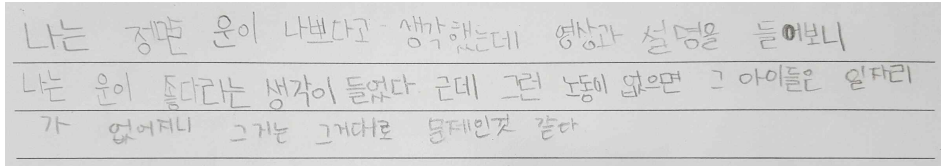 나는 정말 운이 나쁘다고 생각했는데 영상과 설명을 들어보니
나는 운이 좋다라는 생각이 들었다 근데 그런 노동이 없으면 그 아이들은 일자리
가 없어지니 그거는 그거대로 문제인것 같다